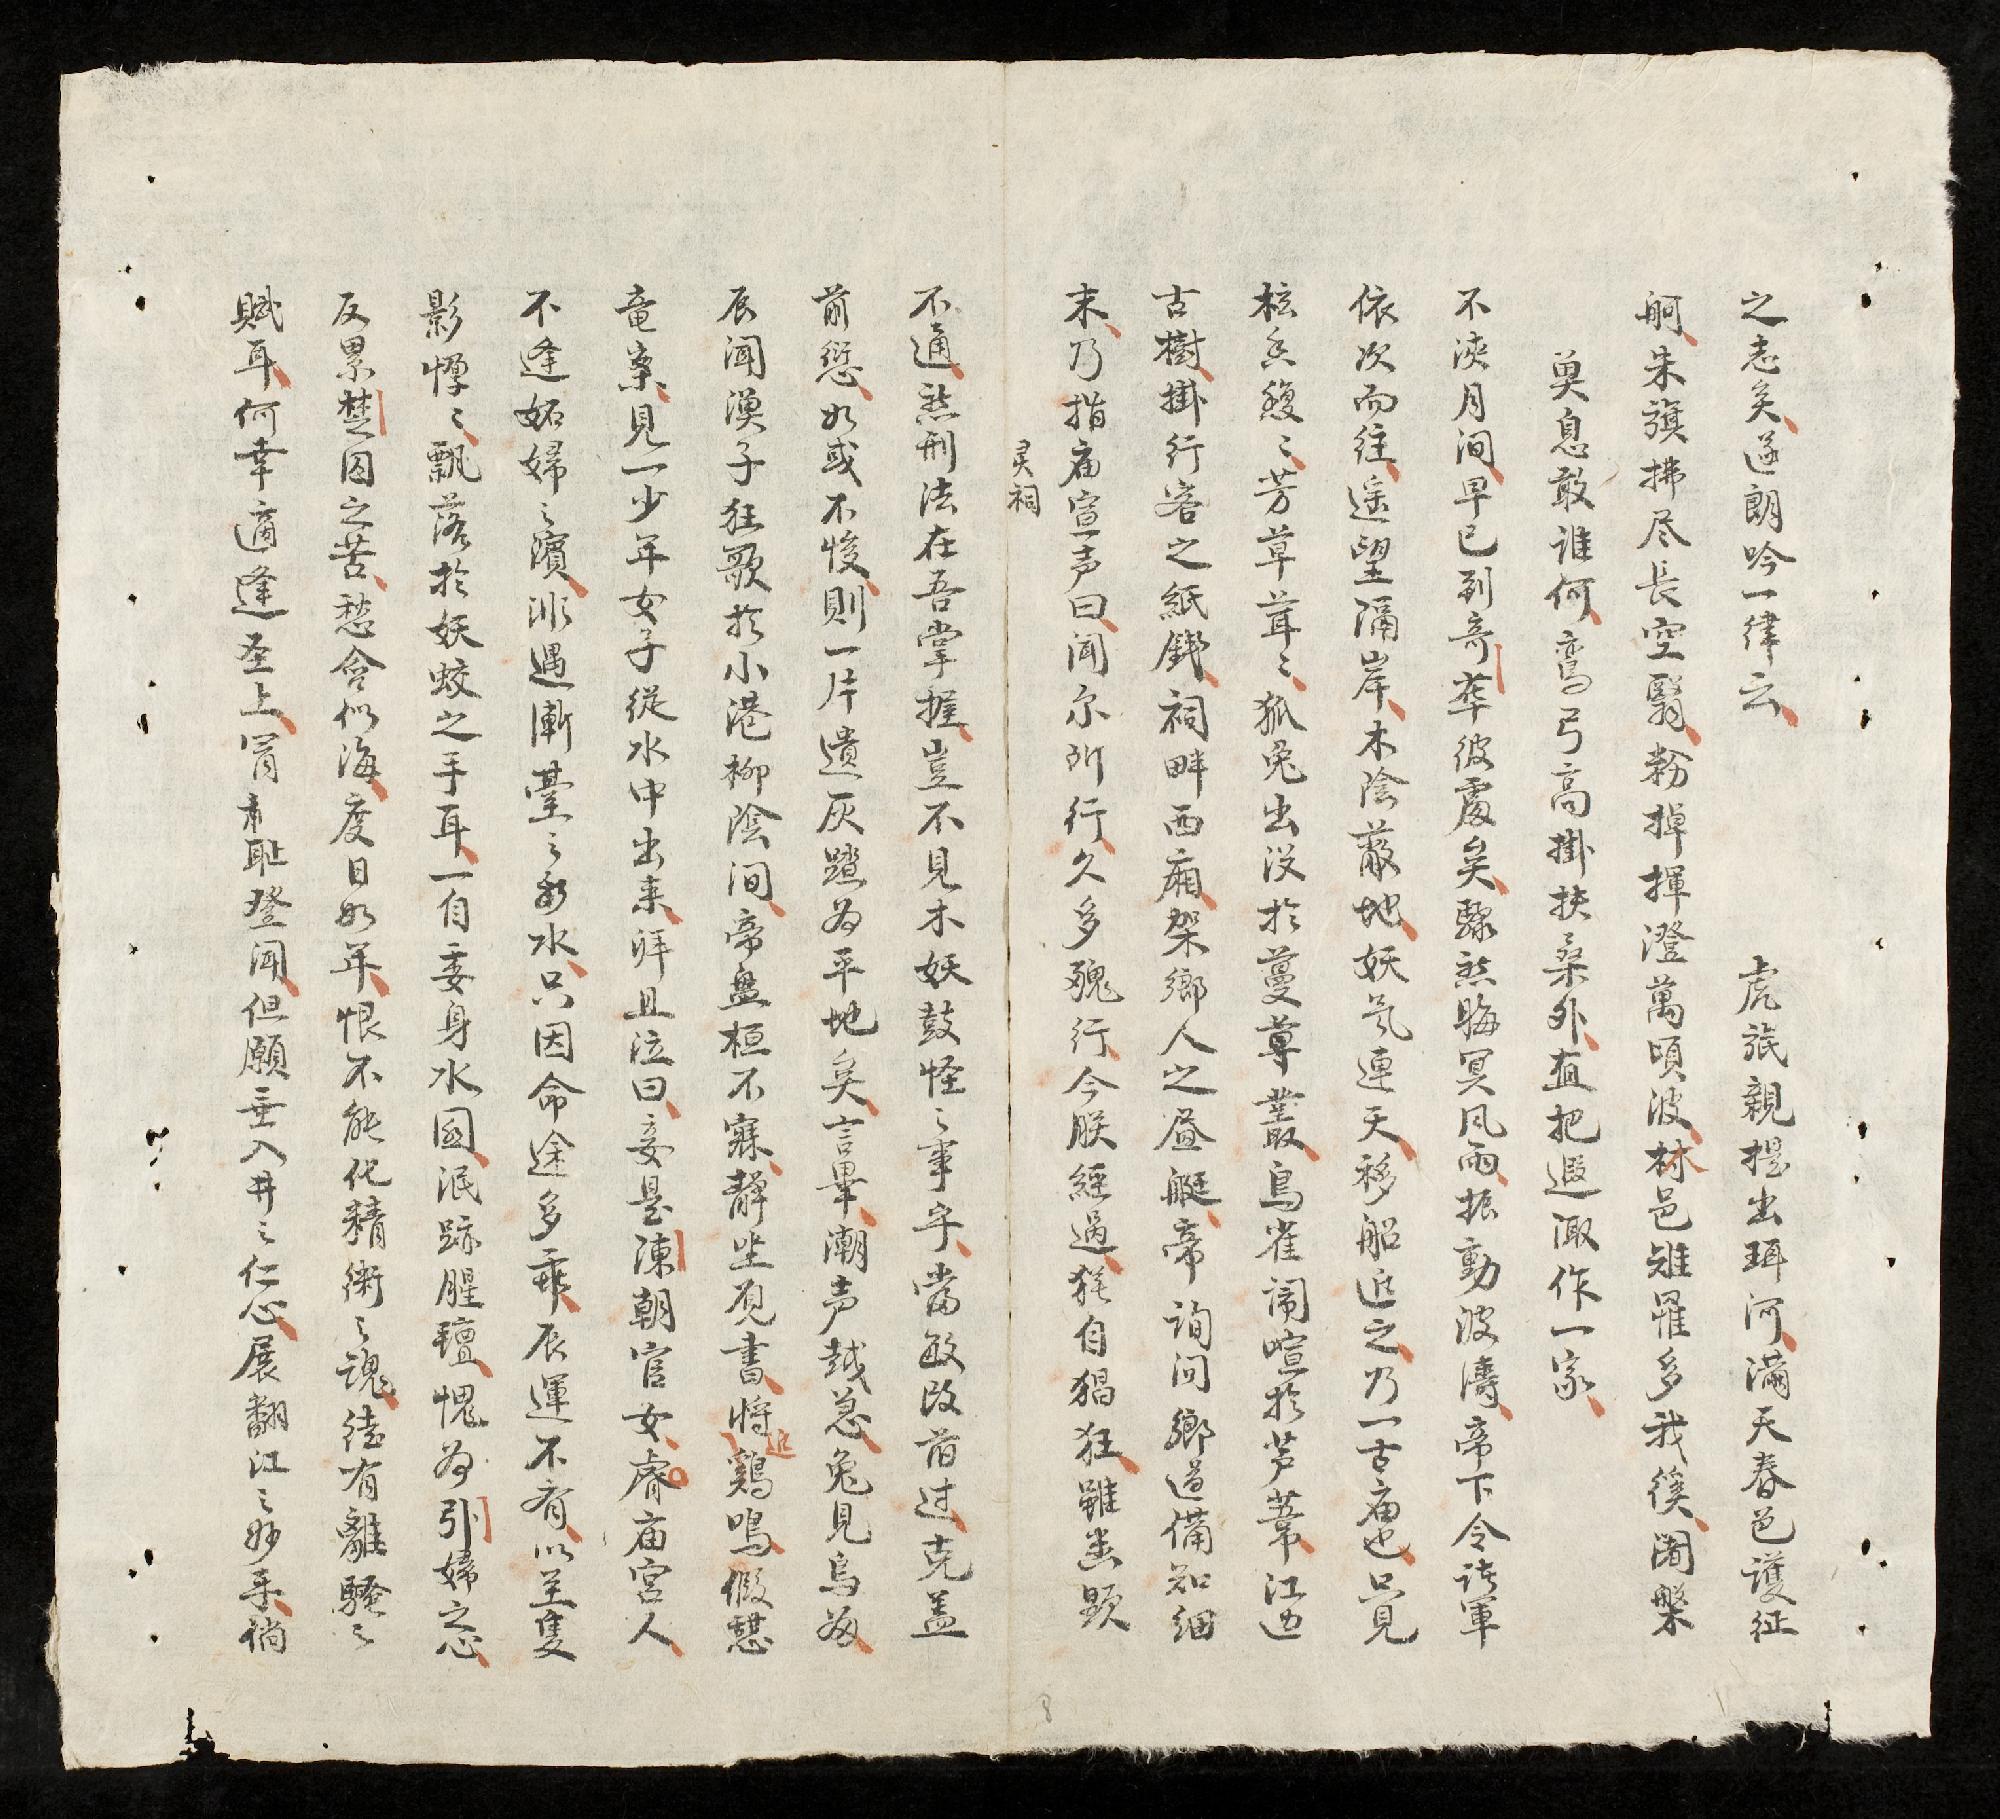 之志矣遂朗吟一律云　虎旅親提出珥河滿天春色護征
舸朱旗拂尽長空翳粉掉揮澄萬頃波林邑雉罹多我徯闍槃
奠息敢谁何鸞弓高掛扶桑外直把遐陬作一家
不浹月间早已到奇華彼處矣驟然晦冥风雨振動波濤帝下令諸軍
依次而往遥望隔岸木陰蔽地妖氛連天移船近之乃一古庙也只見
枟香馥〻芳草茸〻狐兔出没於蔓草叢鳥雀闹喧於芦葦江边
古樹掛行客之紙錢祠畔西廂架鄉人之昼艇帝詢问鄉道備知细
末乃指庙宣声曰闻尔所行久多醜行今朕經過猶自猖狂雖幽顕
灵祠
不通然刑法在吾掌握豈不見木妖鼓怪〻事乎當敏改前过克盖
前愆如或不悛則一片遺灰蹅为平地矣言畢潮声越急兔見烏啼
辰闻漁子狂歌於小港柳陰间帝盘桓不寐静坐观書将近鷄鳴假憇
竜案見一少年女子從水中出来拜且泣曰妾是陳朝官女睿庙宮人
不逢妬婦〻濱涉遇漸臺〻移水只因命途多乖辰運不脊以至隻
影惸〻飄落於妖蛟之手耳一自委身水国泯跡腥羶愧为引婦之心
反累楚囚之苦愁含似海度日如年恨不能化精衛〻魂徒有離騷〻
賦耳何幸適逢圣上冒耒耻登闻但願垂入井〻仁心展翻江〻妙手倘